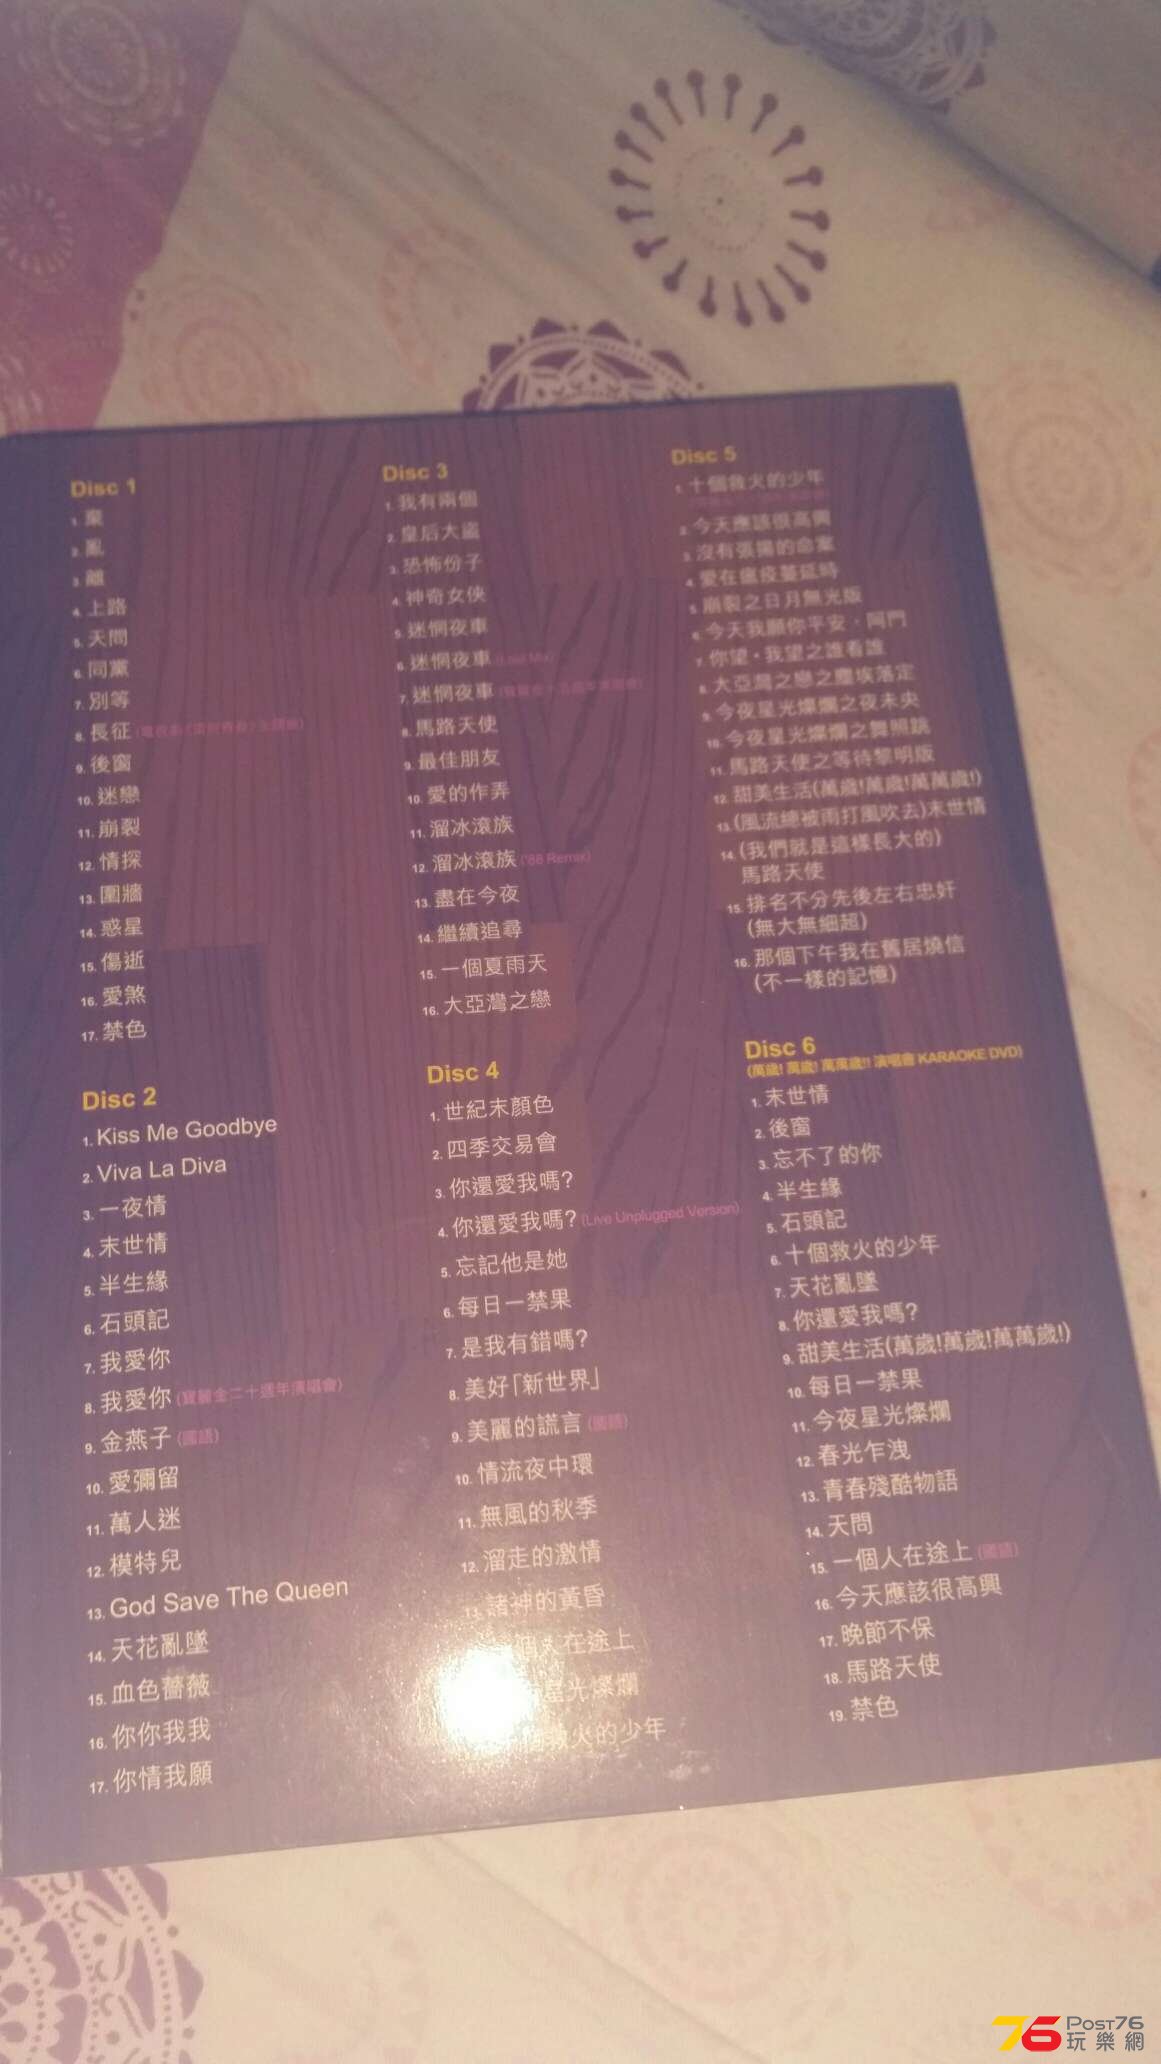 Disc 1
1. 棄
2. 亂
3. 離
4. 上路
5. 天問
6. 同黨
7. 別等
8. 長征
9. 後窗
10. 迷戀
11. 崩裂
12. 情探
13. 圍牆
14. 惑星
15. 傷逝
16. 愛煞
17. 禁色
Disc 2
1. Kiss Me Goodbye
2. Viva La Diva
3. 一夜情
4. 末世情
5. 半生緣
6. 石頭記
7. 我愛你
8. 我愛你 (寶麗金二十週年演唱會)
9. 金燕子 (國語)
10. 愛彌留
11. 萬人迷
12. 模特兒
13. God Save The Queen
14. 天花亂墜
15. 血色薔薇
16. 你你我我
17. 你情我願
Disc 3
1. 我有兩個
2. 皇后大盜
3. 恐怖份子
4. 神奇女俠
5. 迷惘夜車
6. 迷惘夜車
7. 迷惘夜車
8. 馬路天使
9. 最佳朋友
10. 愛的作弄
11. 溜冰滾族
12. 溜冰滾族 ('88 Remix)
13. 盡在今夜
14. 繼續追尋
15. 一個夏雨天
16. 大亞灣之戀
Disc 4
1. 世紀末顏色
2. 四季交易會
3. 你還愛我嗎?
4. 你還愛我嗎? (Live Unplugged Version)
5. 忘記他是她
6. 每日一禁果
7. 是我有錯嗎?
8. 美好「新世界」
9. 美麗的謊言 (國語)
10. 情流夜中環
11. 無風的秋季
12. 溜走的激情
13. 諸神的黃昏
個人在途上
星光燦爛
救火的少年
Disc 5
1. 十個救火的少年
2. 今天應該很高興
3. 沒有張揚的命案
4. 愛在瘟疫蔓延時
5. 崩裂之日月無光版
6. 今天我願你平安・阿門
7. 你望・我望之誰看誰
8. 大亞灣之戀之塵埃落定
9. 今夜星光燦爛之夜未央
10. 今夜星光燦爛之舞照跳
11. 馬路天使之等待黎明版
12. 甜美生活(萬歲!萬歲!萬萬歲!)
13. (風流總被雨打風吹去)末世情
14. (我們就是這樣長大的)
馬路天使
15. 排名不分先後左右忠奸
(無大無細超)
16. 那個下午我在舊居燒信
(不一樣的記憶)
Disc 6
(萬歲! 萬歲! 萬萬歲!! 演唱會 KARAOKE DVD)
1. 末世情
2. 後窗
3. 忘不了的你
4. 半生緣
5. 石頭記
6. 十個救火的少年
7. 天花亂墜
8. 你還愛我嗎?
9. 甜美生活(萬歲!萬歲!萬萬歲!)
10. 每日一禁果
11. 今夜星光燦爛
12. 春光乍洩
13. 青春殘酷物語
14. 天問
15. 一個人在途上 (國語)
16. 今天應該很高興
17. 晚節不保
18. 馬路天使
19. 禁色
76 POST76
玩樂網